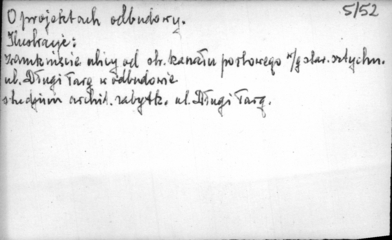 O projektach odbudowy. 5/52
Ilustracje:
Zamknięcie ulicy od str. kanału portowego w/g star. sztychu.
ul. Długi Targ w odbudowie
studjum archit. zabytk. ul. Długi Targ.